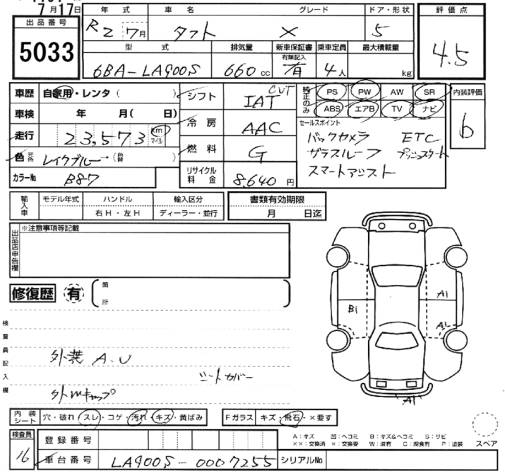 7月17日
出品番号 年式 車名 グレード ドア・形状 評価点
5033 R2 7月 タフト X 5 4.5
型式 排気量 新車保証書 乗車定員 最大積載量
有無記入
6BA-LA900S 660cc 有 4人 kg
車歴 自家用・レンタ( )
シフト CVT IAT
純正のみ PS PW AW SR
ABS エアB TV ナビ
内装評価 b
車検 年 月( )
冷房 AAC
セールスポイント
バックカメラ ETC
走行 23,573 km マイル
燃料 G
ガラスルーフ プッシュスタート
色 元色 レイクブルー(替 )
スマートアシスト
カラーNo B87
リサイクル料金 8,640円
輸入車 モデル年式 ハンドル 輸入区分 書類有効期限
右H・左H ディーラー・並行 月 日迄
出品店申告欄 ※注意事項等記載
修復歴 有 箇所
検査員記入欄
外装 A.U
シートカバー
B1
A1
A1
A1
内装シート 穴・破れ スレ・コゲ・汚れ キズ・黄ばみ
Fガラス キズ・飛石・×要す
スペア
検査員 16
登録番号
車台番号 LA900S-0007255 シリアルNo
A:キズ 凹:ヘコミ B:キズ&ヘコミ S:サビ